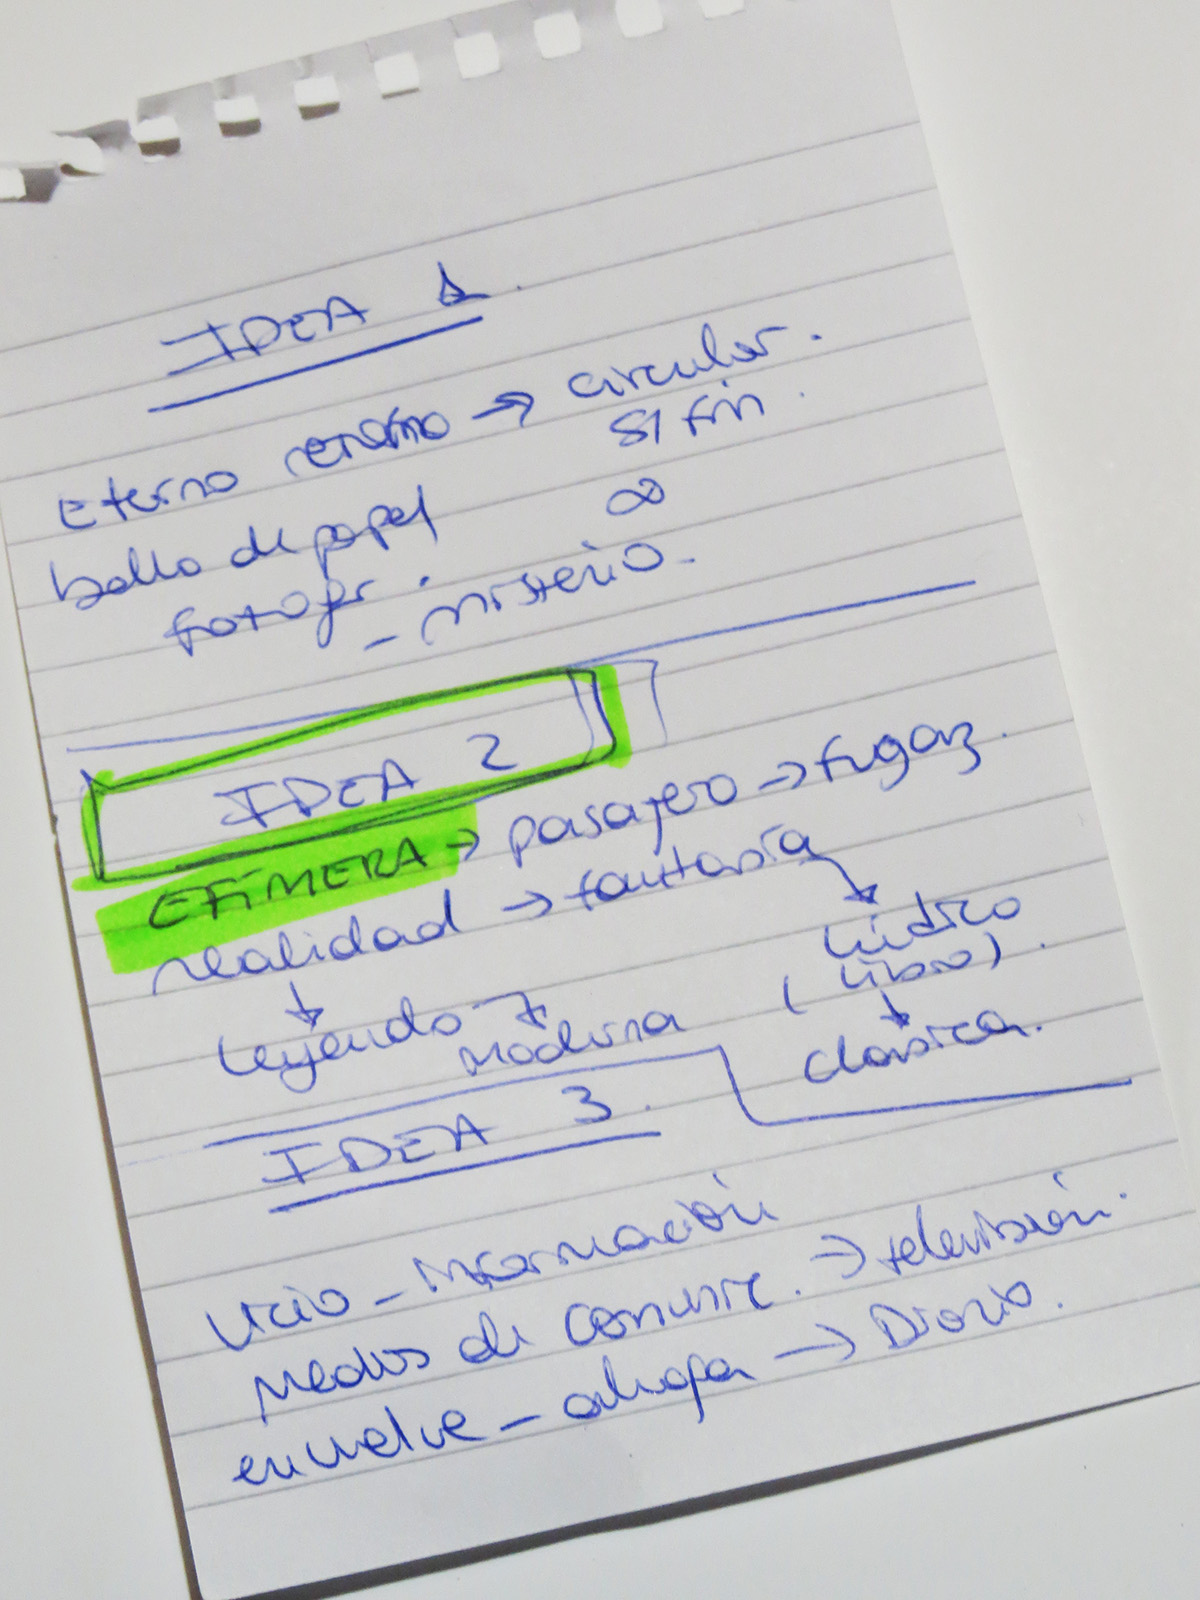 IDEA 1.
Eterno retorno → circular.
S/ fin.
bollo de papel ∞
fotogr.
- misterio.
IDEA 2
EFÍMERA → pasajero → fugaz.
realidad → fantasía
↓ lúdico
leyendo → (libro).
moderna ↓
clásica.
IDEA 3.
vicio - Información
Medios de comunic. → televisión.
envuelve - → Diario.